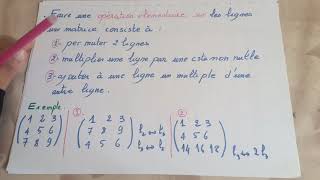 Faire une opération élémentaire sur les lignes
une matrice consiste à :
① permuter 2 lignes
② multiplier une ligne par une cste non nulle
③ ajouter à une ligne un multiple d'une
autre ligne.
Exemple ① ②
(1 2 3) (1 2 3) (1 2 3)
(4 5 6) (7 8 9) L2 ↔ L3 (4 5 6)
(7 8 9) (4 5 6) L3 ↔ L2 (14 16 18) L3 ↔ 2 L3